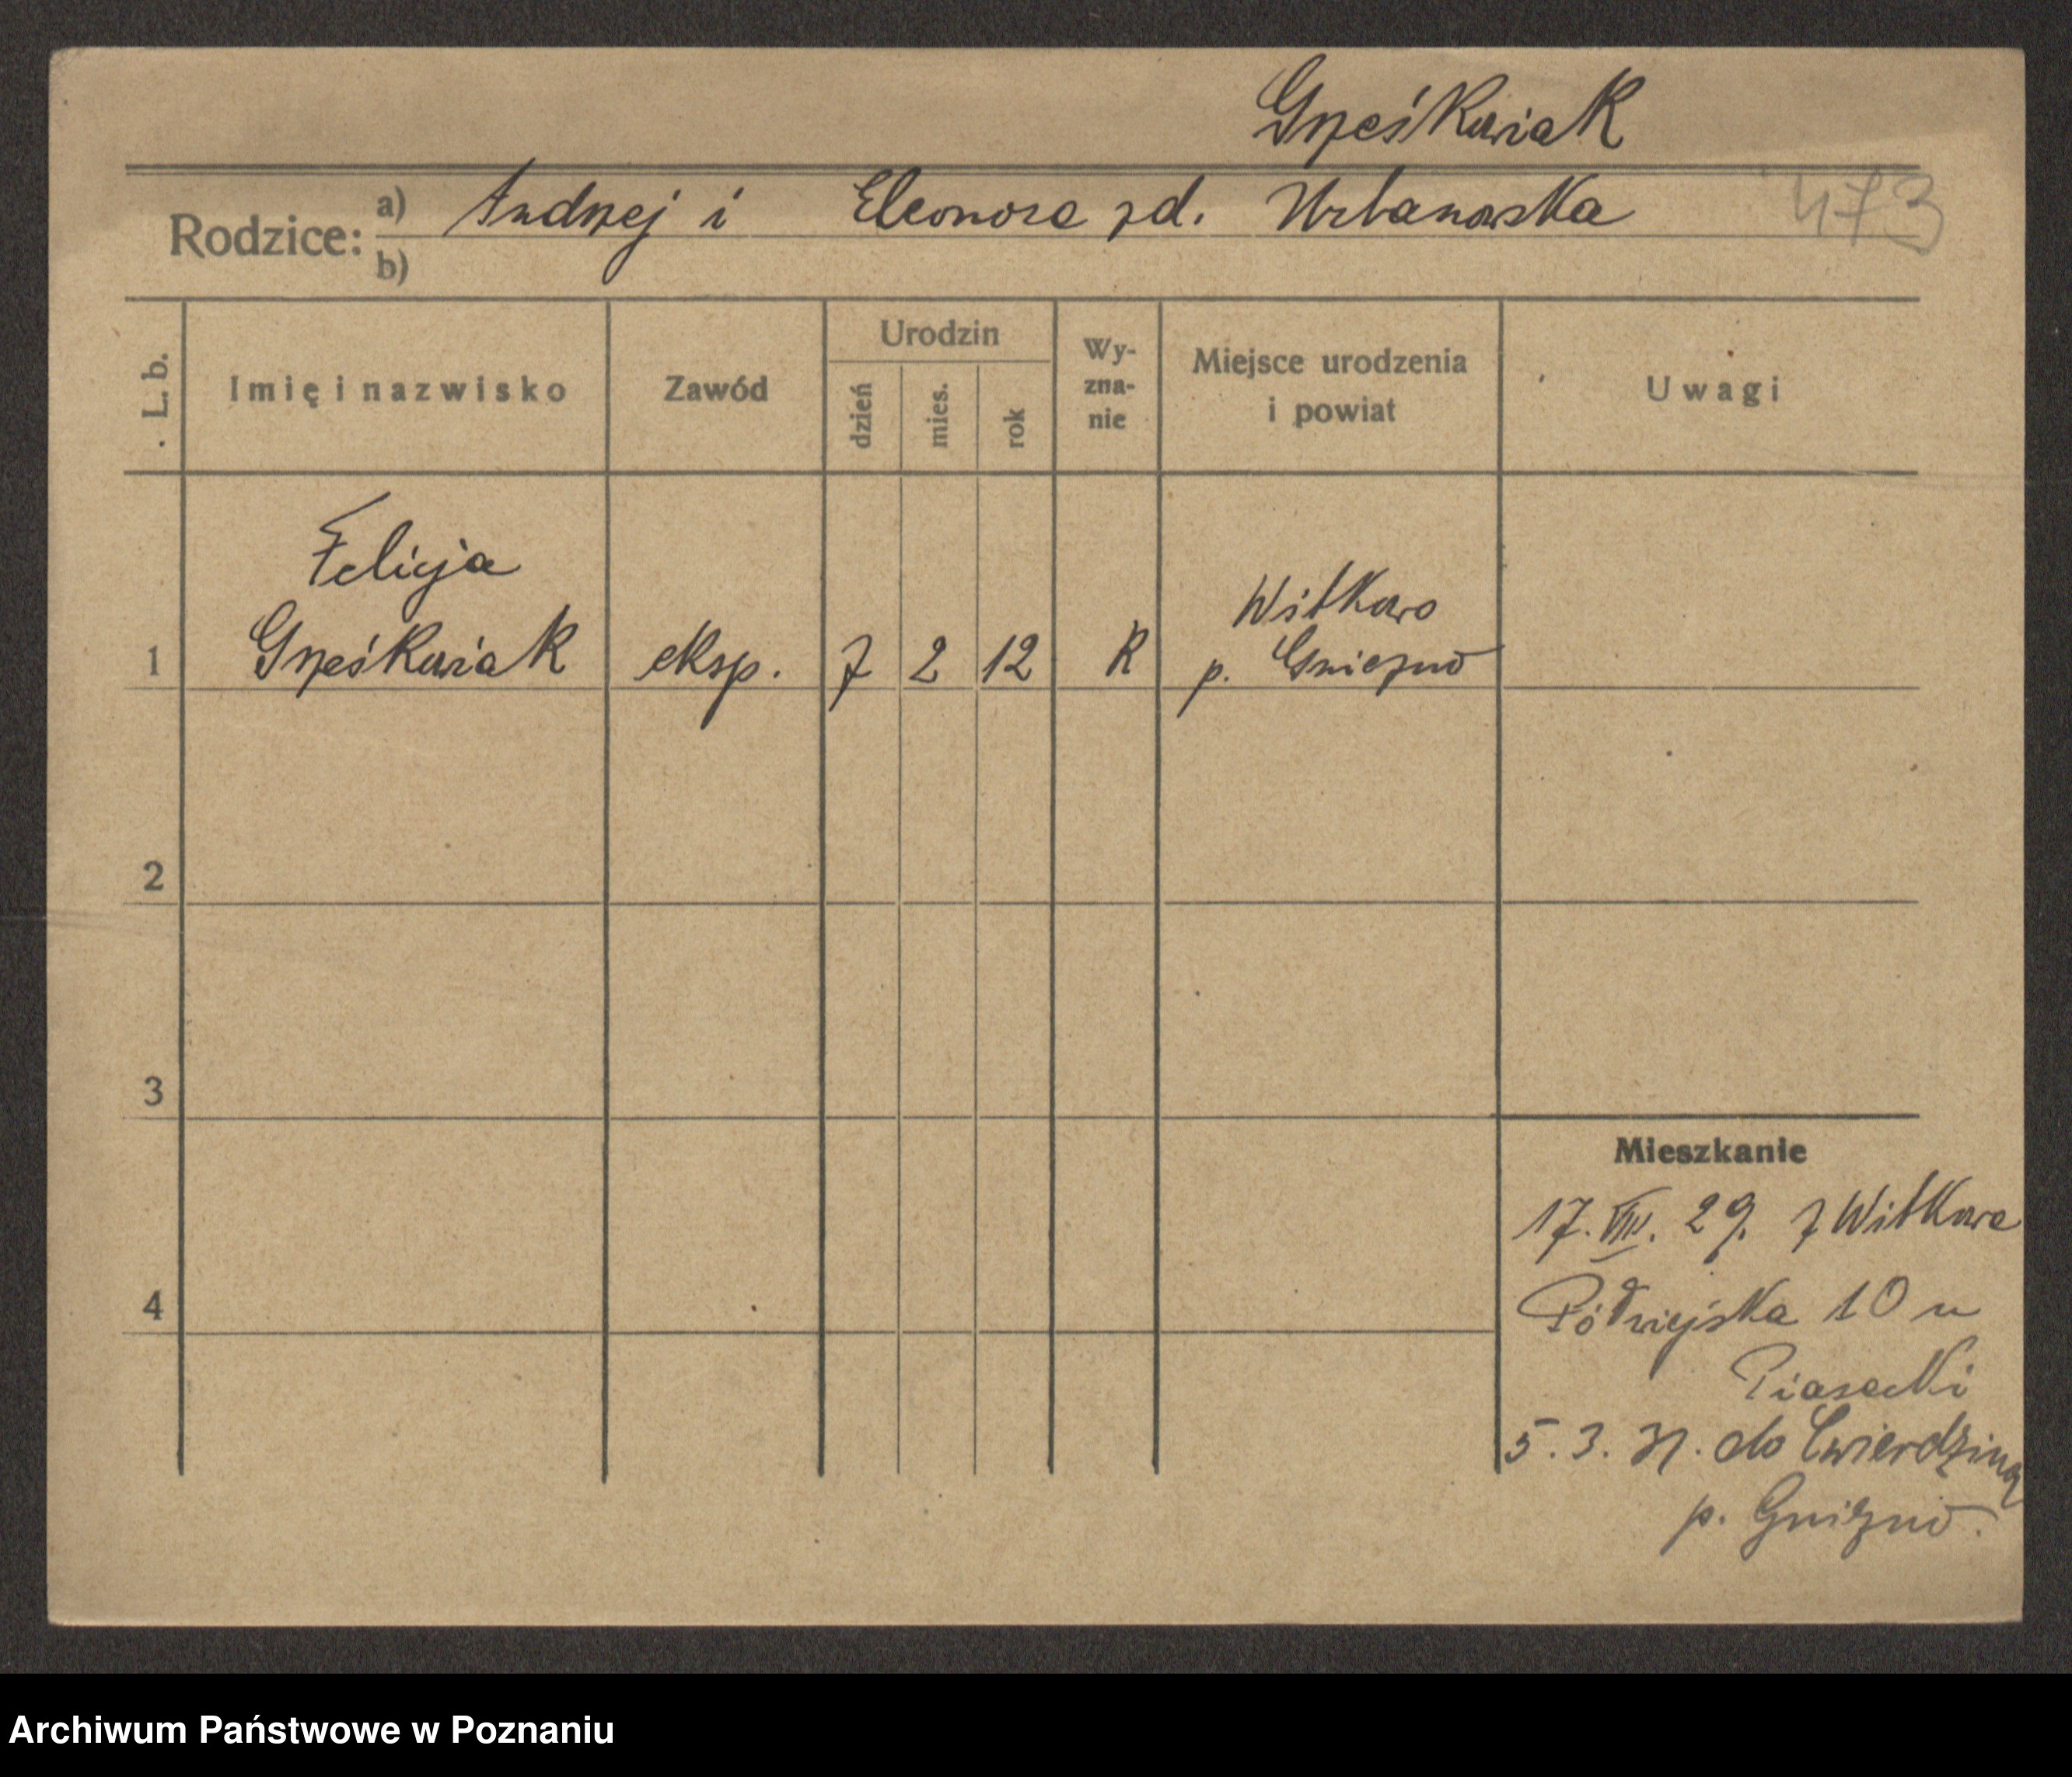 Grześkowiak
Rodzice: a) Andrzej i Eleonora zd. Urbanowska 473
b)
L. b.
Imię i nazwisko
Zawód
Urodzin
dzień
mies.
rok
Wy-
zna-
nie
Miejsce urodzenia
i powiat
Uwagi
Felicja
Witkowo
1 Grześkowiak eksp. 7 2 12 R p. Gniezno
2
3
Mieszkanie
17. VIII. 29. z Witkowa
4
Półwiejska 10 u
Piasecki
5. 3. 31. do Ćwierdzina
p. Gniezno.
Archiwum Państwowe w Poznaniu